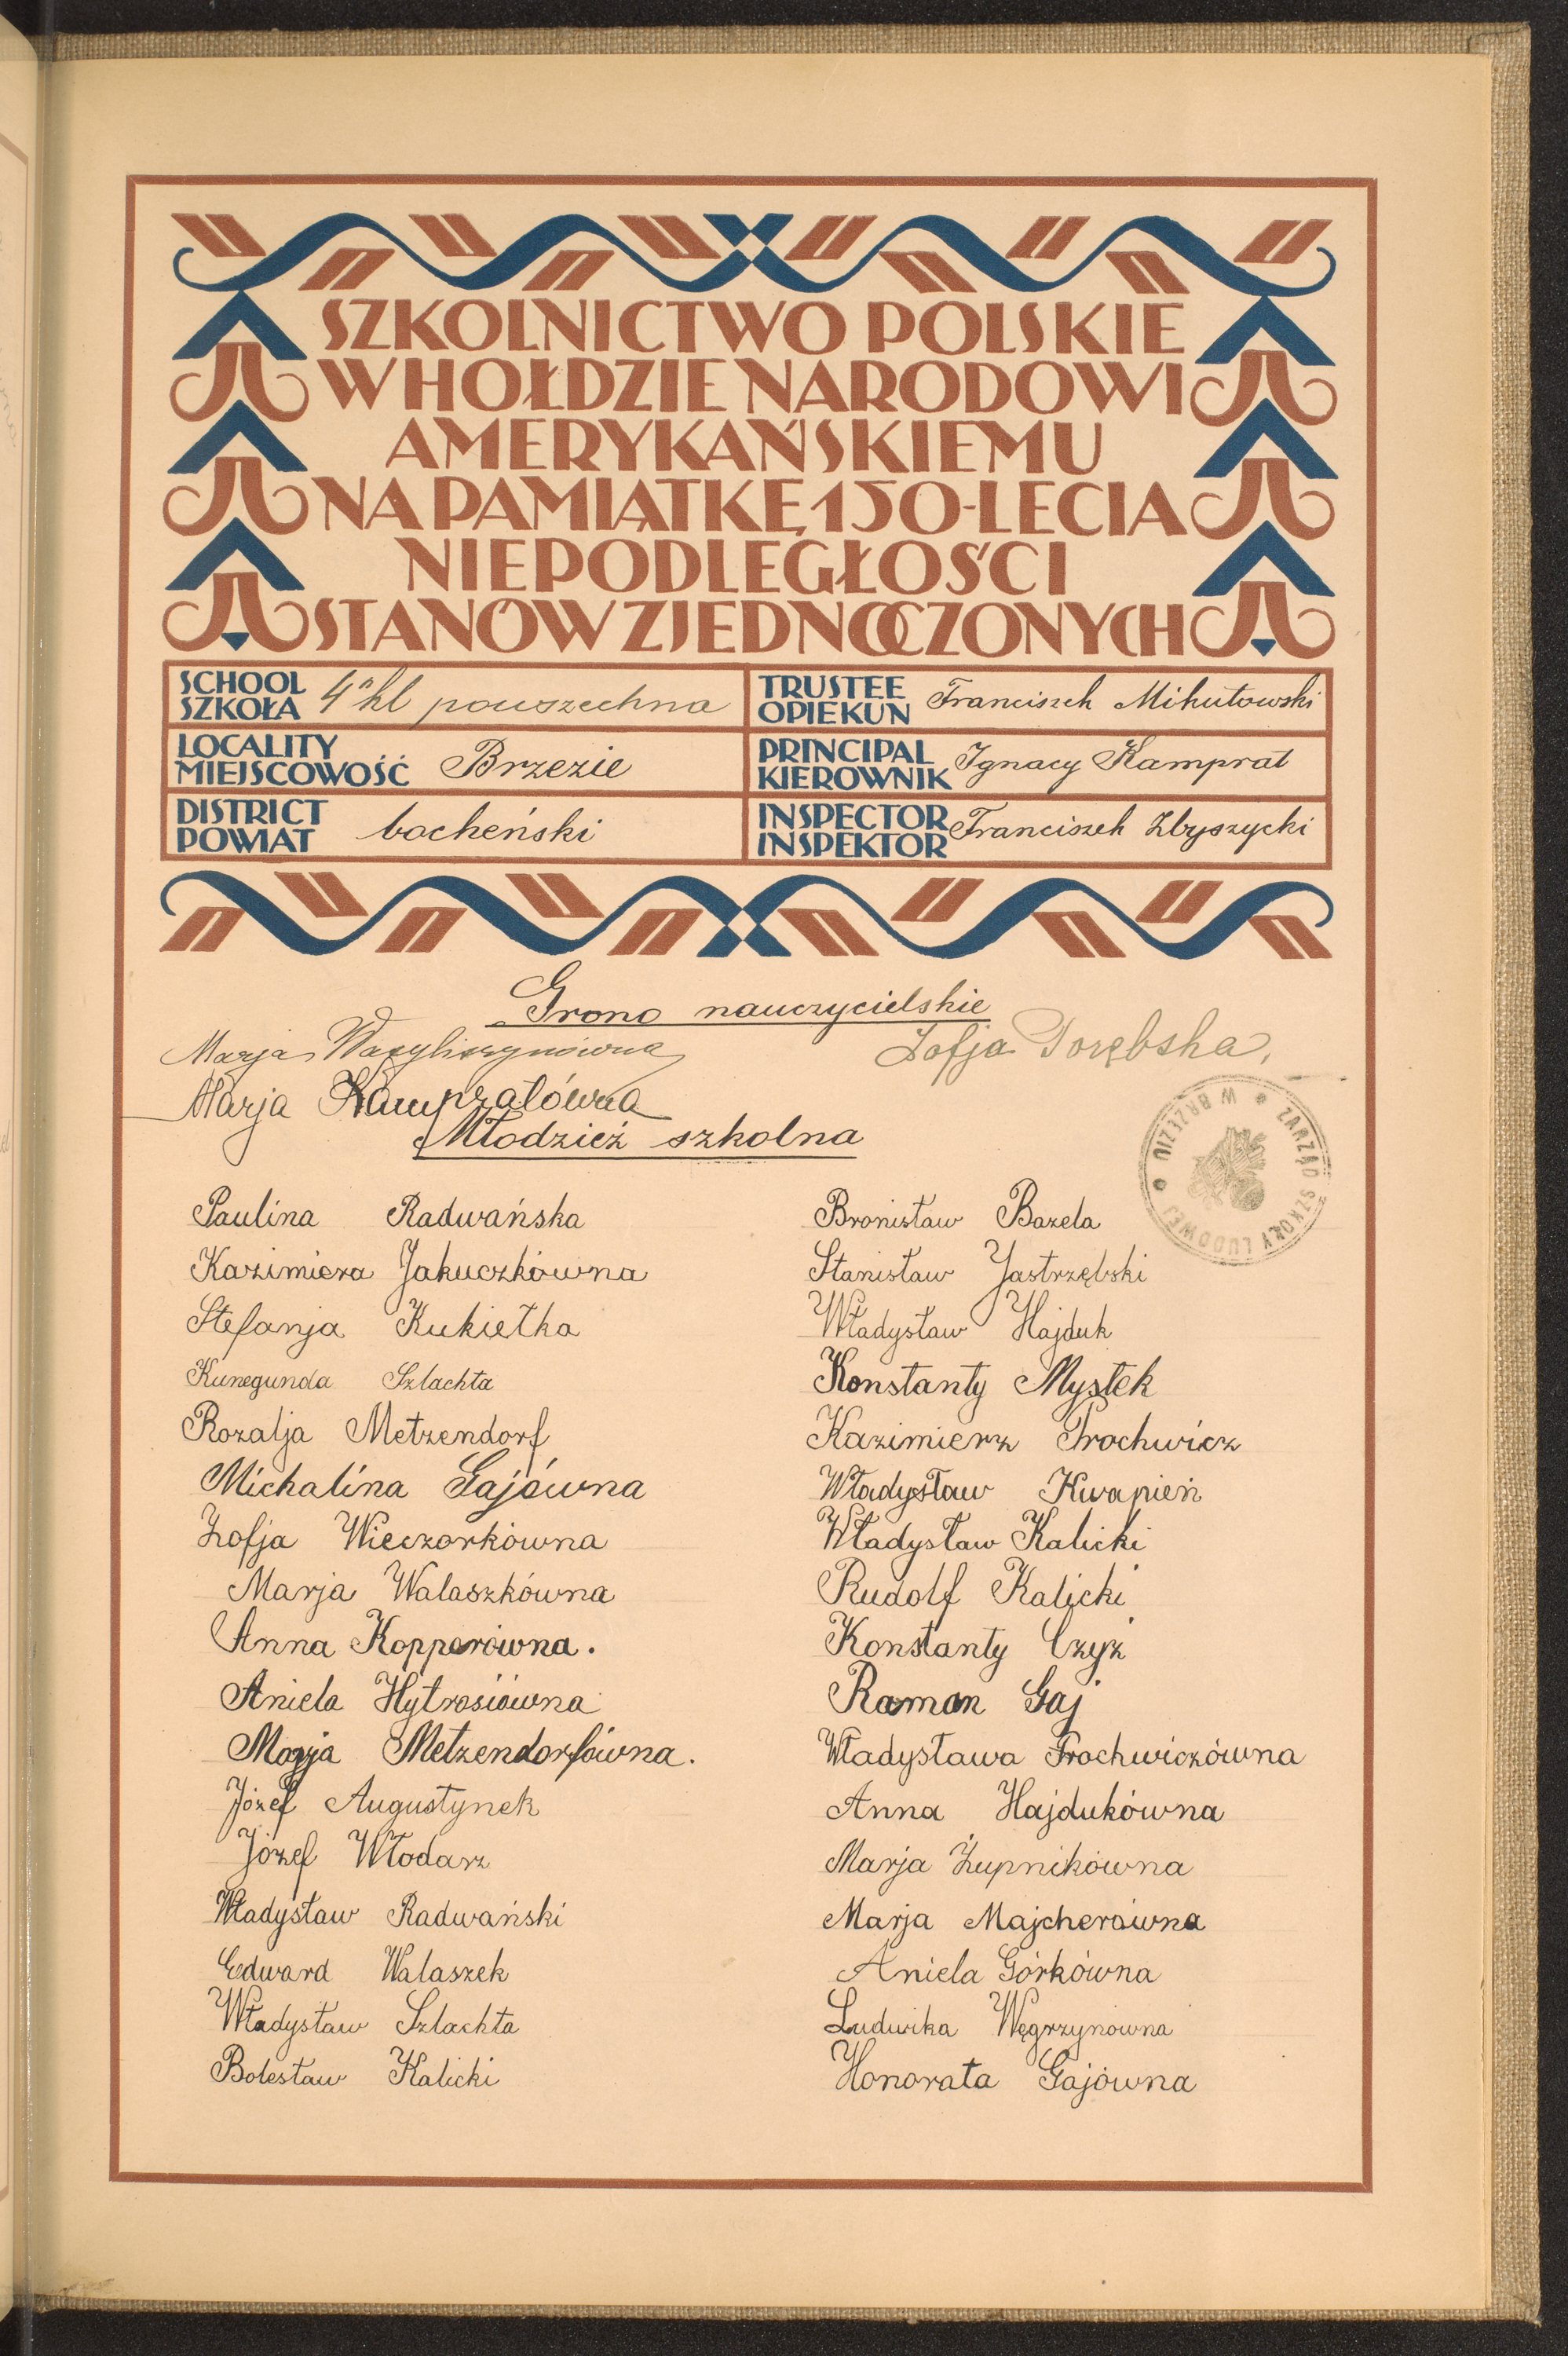 SZKOLNICTWO POLSKIE
W HOŁDZIE NARODOWI
AMERYKAŃSKIEMU
NA PAMIĄTKĘ 150-LECIA
NIEPODLEGŁOŚCI
STANÓW ZJEDNOCZONYCH
SCHOOL SZKOŁA 4 kl powszechna
TRUSTEE OPIEKUN Franciszek Mikułowski
LOCALITY MIEJSCOWOŚĆ Brzezie
PRINCIPAL KIEROWNIK Ignacy Kamprat
DISTRICT POWIAT bocheński
INSPECTOR INSPEKTOR Franciszek Zbyszycki
Grono nauczycielskie
Marja Wasyliszynówna
Zofja Porębska,
Marja Kampratówna
Młodzież szkolna
ZARZĄD SZKOŁY LUDOWEJ W BRZEZIU
Paulina Radwańska
Kazimiera Jakuczkówna
Stefanja Kukiełka
Kunegunda Szlachta
Rozalja Metzendorf
Michalina Gajówna
Zofja Wieczorkówna
Marja Walaszkówna
Anna Kopperówna.
Aniela Hytrosiówna
Marja Metzendorfówna.
Józef Augustynek
Józef Włodarz
Władysław Radwański
Edward Walaszek
Władysław Szlachta
Bolesław Kalicki
Bronisław Bazela
Stanisław Jastrzębski
Władysław Hajduk
Konstanty Mystek
Kazimierz Prochwicz
Władysław Kwapień
Władysław Kalicki
Rudolf Kalicki
Konstanty Czyż
Roman Gaj
Władysława Prochwiczówna
Anna Hajdukówna
Marja Żupnikówna
Marja Majcherówna
Aniela Górkówna
Ludwika Węgrzynówna
Honorata Gajówna